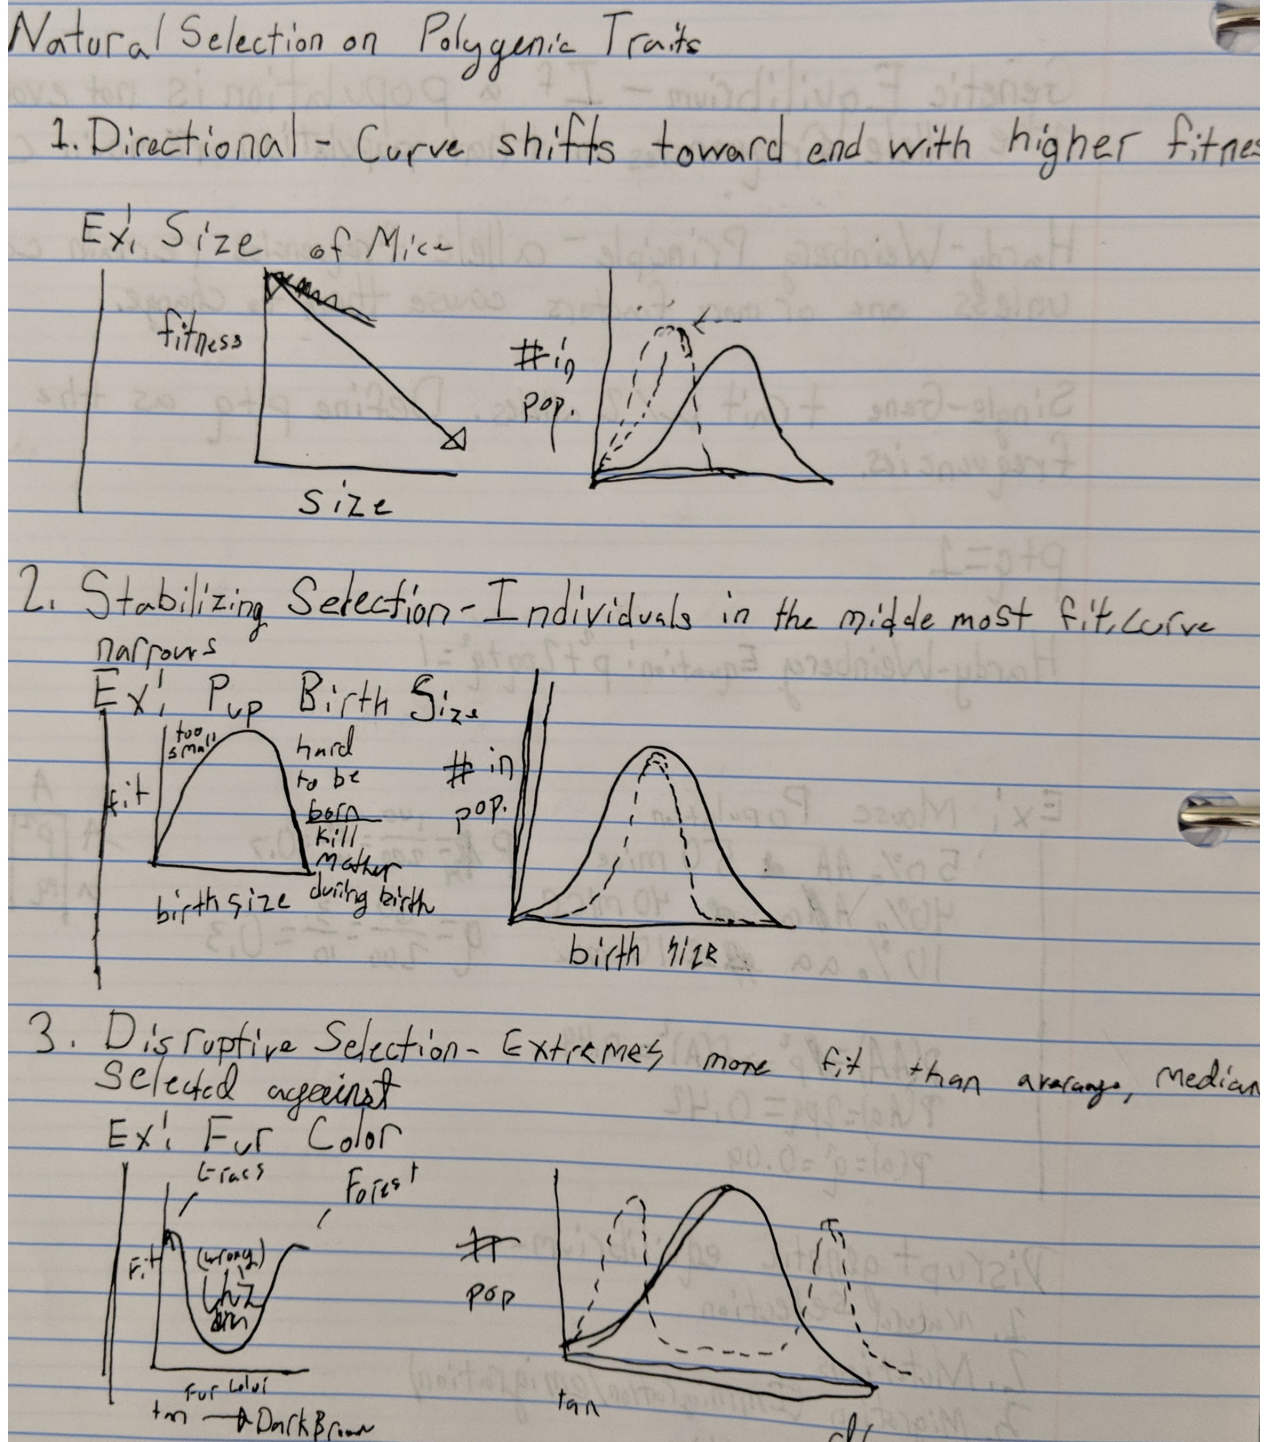 Natural Selection on Polygenic Traits
1. Directional - Curve shifts toward end with higher fitnes
Ex: Size of Mice
fitness
size
# in
pop.
2. Stabilizing Selection - Individuals in the middle most fit, curve
narrows
Ex: Pup Birth Size
too
small
hard
to be
born
kill
mother
during birth
fit
birth size
# in
pop.
birth size
3. Disruptive Selection - Extremes more fit than avarange, median
selected ageainst
Ex: Fur Color
Forest
Fit
(wrong)
Fur Color
tan → Dark Brown
#
pop
tan